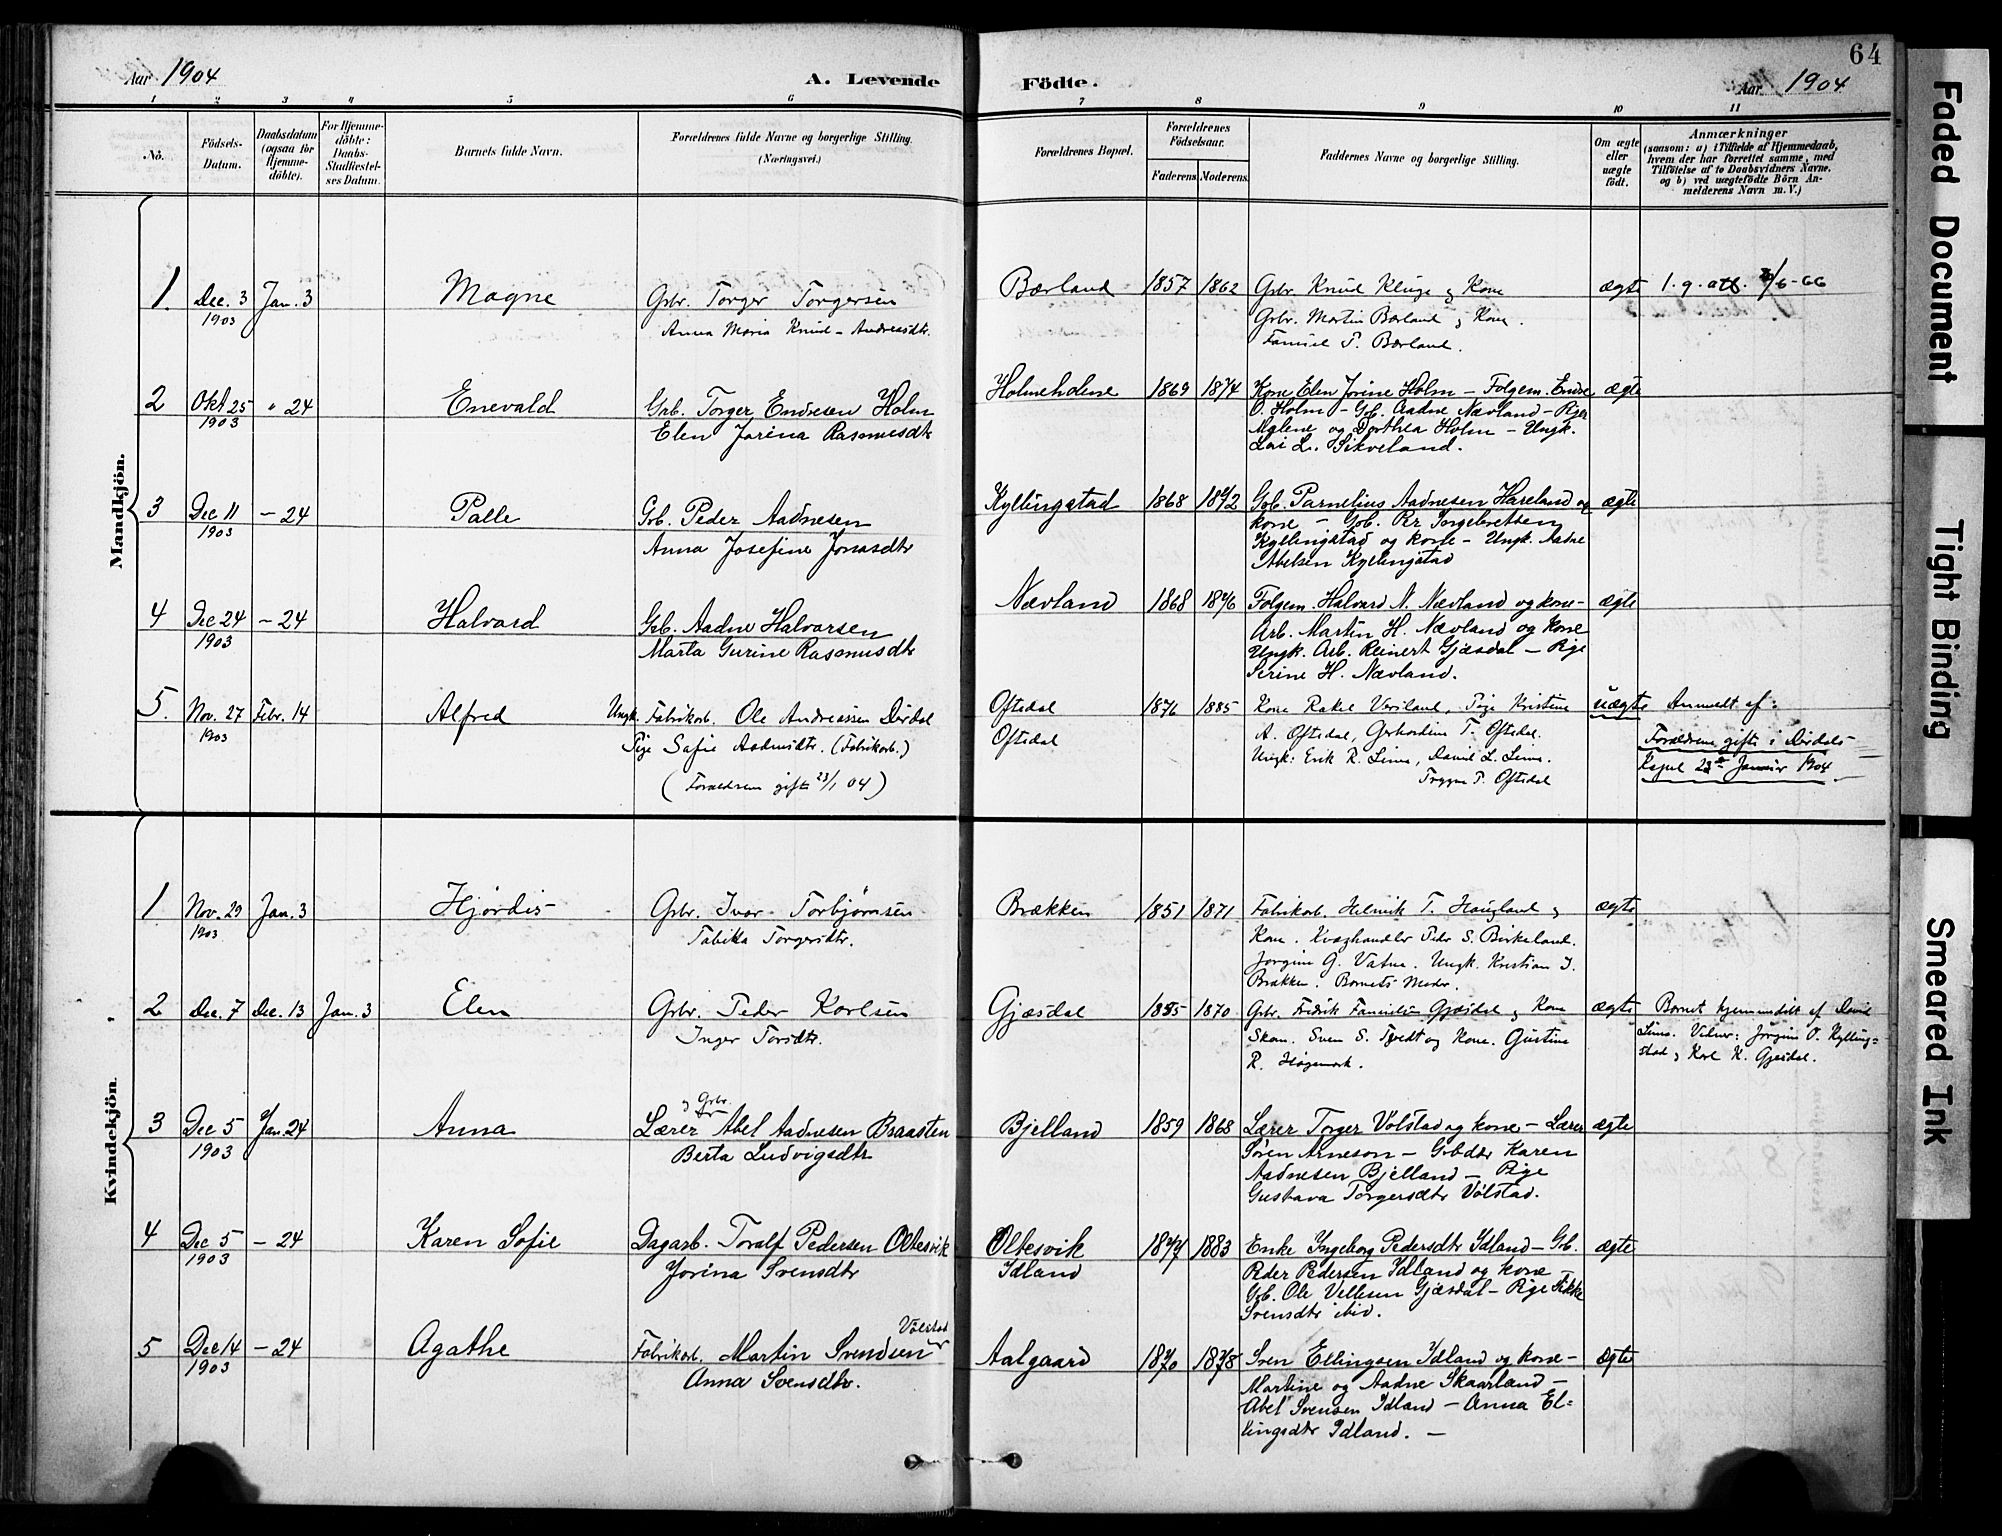 64
Aar 1904
A. Levende
Födte.
Aar 1904
1 2 3 4 5 6 7 8 9 10 11
No.
Födsels-
Datum.
Daabsdatum
(ogsaa for
Hjemme-
döbte).
For Hjemme-
döbte:
Daabs-
Stadfæstel-
ses Datum.
Barnets fulde Navn.
Forældrenes fulde Navne og borgerlige Stilling.
(Næringsvei.)
Forældrenes Bopæl.
Forældrenes
Födselsaar.
Faderens Moderens
Faddernes Navne og borgerlige Stilling.
Om ægte
eller
uægte
födt.
Anmærkninger
(saasom: a) i Tilfælde af Hjemmedaab,
hvem der har forrettet samme, med
Tilföielse af to Daabsvidners Navne.
og b) ved uægtefödte Börn An-
melderens Navn m. V.)
Mandkjön.
1. Dec. 3 Jan. 3 Magne Grbr. Torger Torgersen Bærland 1857 1862 Grbr. Knud Kluge og Kone ægte 1. g. att. /6-66
1903 Anna Maria Knud-Andreasdtr. Grbr. Martin Bærland og Kone.
T. Bærland.
2 Okt 25 " 24 Enevald Grb. Torger Endresen Holm Holmeholene 1869 1874 Kone Elen Jorine Holm – Folgem. Endre ægte
1903 Elen Jorina Rasmusdtr O. Holm – Gb. Aadne Nævland – Piger
Malene og Dorthea Holm – Ungk.
L. Sikveland.
3 Dec 11 – 24 Palle Grb. Peder Aadnesen Kyllingstad 1868 1872 Gb. Parnelius Aadnesen Hareland og ægte
1903 Anna Josefine Jonasdtr kone – Gb. Pr Ingebretsen
Kyllingstad og kone – Ungk. Aadne
Abelsen Kyllingstad
4 Dec 24 – 24 Halvard Grb. Aadne Halvarsen Nævland 1868 1876 Folgem. Halvard N. Nævland og kone – ægte
1903 Marta Gurine Rasmusdtr Arb. Martin H. Nævland og kone
Ungk. Arb. Reinert Gjæsdal – Pige
Serine H. Nævland.
5. Nov. 27 Febr. 14 Alfred Ungk. Fabrikarb. Ole Andreassen Dirdal Oftedal 1876 1885 Kone Rakel Versland, Pige Kristine uægte Anmeldt af:
1903 Pige Sofie Aadnesdtr. (Fabrikarb.) Oftedal A. Oftedal, Gerhardine T. Oftedal. Forældrene gifte i Dirdals
(Forældrene gifte 23/1 04) Ungk: Erik R. Lima, David L. Lima. Kapel 23de Januar 1904
Trygve T. Oftedal
Kvindekjön.
1. Nov. 29 Jan. 3 Hjørdis Grbr. Ivar Torbjørnsen Brækken 1851 1871 Fabrikarb. Helmik T. Haugland og ægte
1903 Tabitta Torgersdtr. Kone. Kvæghandler Peder S. Birkeland.
Jorgine G. Vatne. Ungk. Kristian I.
Brækken. Barnets Moder.
2 Dec. 7 Dec. 13 Jan. 3 Elen Grbr. Peder Karlsen Gjæsdal 1855 1870 Grbr. Fredrik Gjæsdal og Kone ægte Barnet hjemmedöbt af David
Inger Torsdtr. Skom. Sven S. Tvedt og Kone. Gustine Lima. Vidner: Jørgine O. Kylling=
R. Høgemark. stad og Karl K. Gjesdal.
3 Dec 5 Jan. 24 Anna Lærer og Grbr. Abel Aadnesen Braasten Bjelland 1859 1868 Lærer Torger Volstad og kone – Lærer ægte
1903 Berta Ludvigsdtr Søren Arneson – Grbdtr Karen
Aadnesen Bjelland – Pige
Gustava Torgersdtr Vølstad.
4 Dec 5 – 24 Karen Sofie Dagarb. Toralf Pedersen Oltesvik Oltesvik 1877 1883 Enke Ingeborg Pedersdtr Idland – Gb. ægte
1903 Jorina Svensdtr Idland Peder Pedersen Idland og kone –
Gb. Ole Vellesen Gjæsdal – Pige Sikke
Svensdtr ibid.
5 Dec 14 – 24 Agathe Fabrikarb. Martin Svendsen Volstad Aalgaard 1870 1878 Sven Ellingsen Idland og kone – ægte
1903 Anna Svensdtr. Martine og Aadne Skaarland –
Abel Svensen Idland – Anna El=
lingsdtr Idland. –
Faded Document
Tight Binding
Smeared Ink